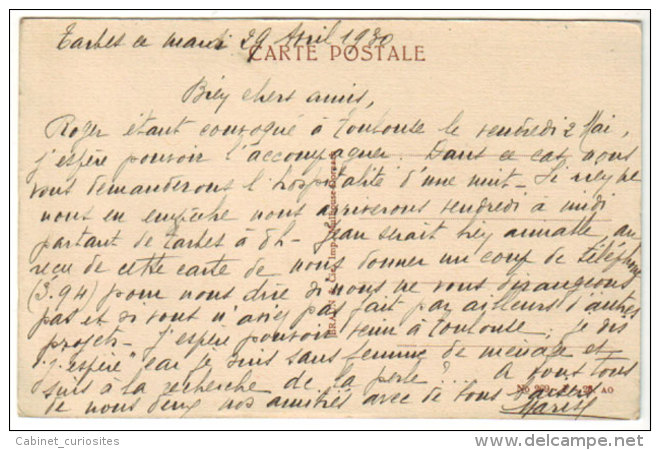 Tarbes ce mardi 29 Avril 1930
CARTE POSTALE
Bien chers amis,
Roger étant convoqué à Toulouse le vendredi 2 Mai,
j'espère pouvoir l'accompagner. Dans ce cas nous
vous demanderons l'hospitalité d'une nuit - Si rien ne
nous en empêche nous arriverons vendredi à midi
partant de Tarbes à 8h - Jean serait bien aimable au
reçu de cette carte de nous donner un coup de téléphone
(3.94) pour nous dire si nous ne vous dérangeons
pas et si vous n'aviez pas fait par ailleurs d'autres
projets - J'espère pouvoir venir à Toulouse, je dis
"j'espère" car je suis sans femme de ménage et
suis à la recherche de la perle ? ... A vous tous
de nous deux nos amitiés avec de bons baisers
BRAUN & Cie, Imp.
No